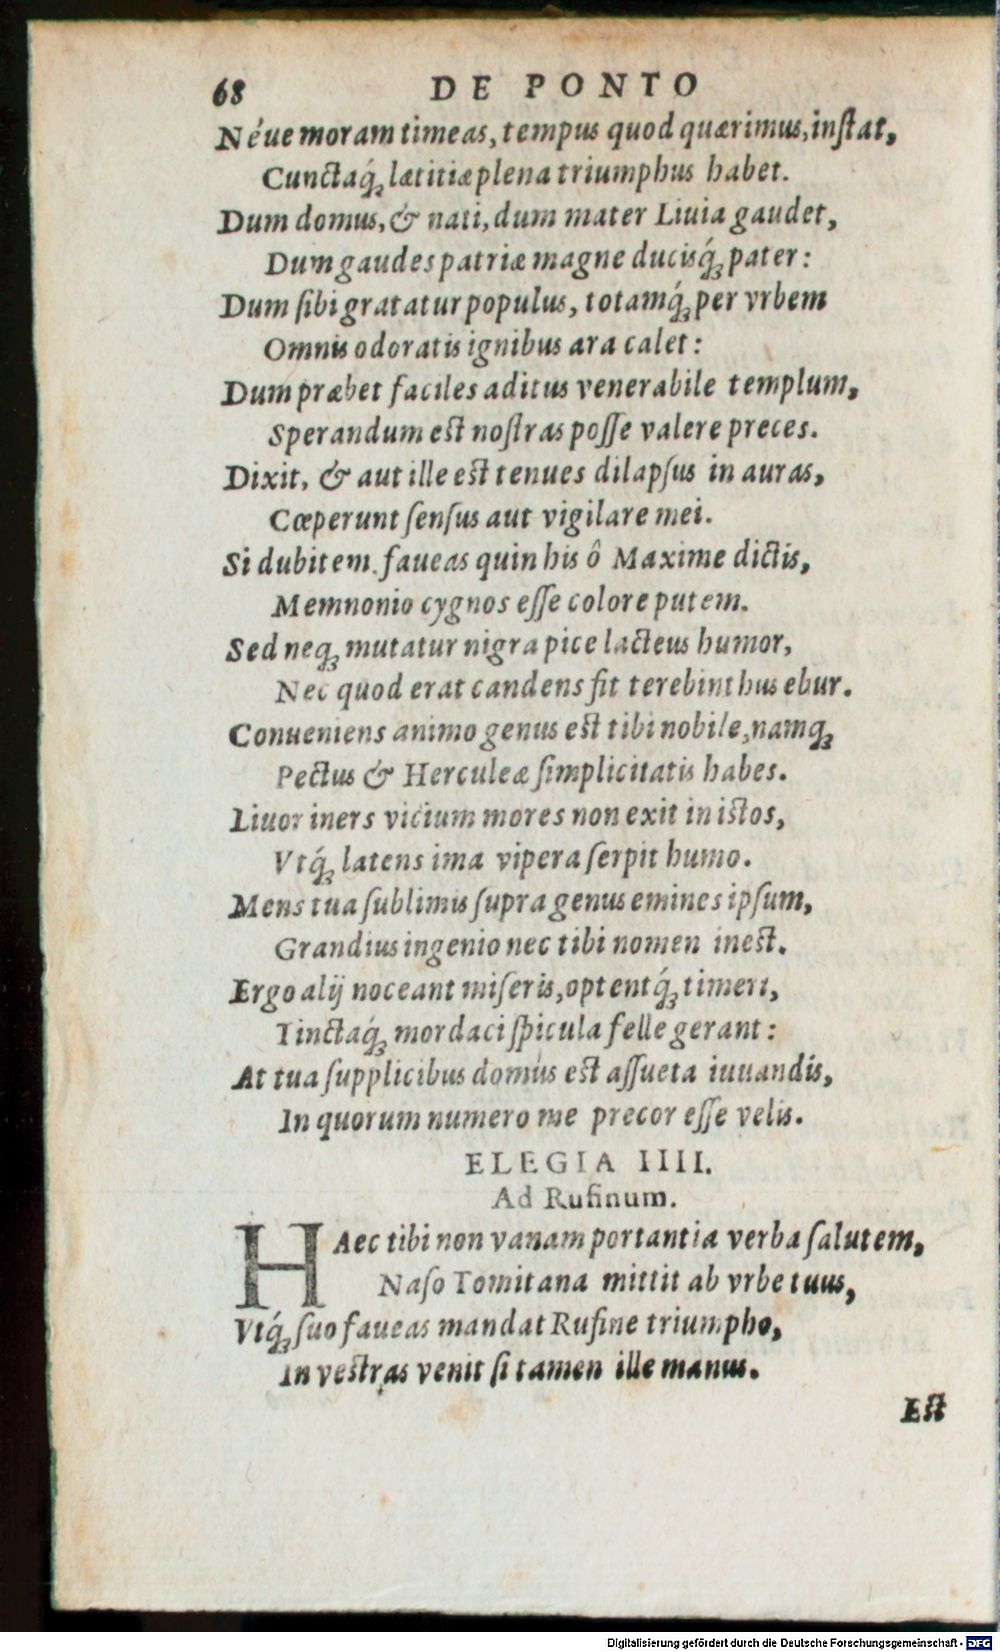 68 DE PONTO
Néue moram timeas, tempus quod quærimus, inſtat,
Cunctaq́ꝫ lætitiæ plena triumphus habet.
Dum domus, & nati, dum mater Liuia gaudet,
Dum gaudes patriæ magne ducisq́ꝫ pater:
Dum ſibi gratatur populus, totamq́ꝫ per vrbem
Omnis odoratis ignibus ara calet:
Dum præbet faciles aditus venerabile templum,
Sperandum est noſtras poſſe valere preces.
Dixit, & aut ille est tenues dilapſus in auras,
Cœperunt ſenſus aut vigilare mei.
Si dubitem. faueas quin his ô Maxime dictis,
Memnonio cygnos eſſe colore putem.
Sed neqꝫ mutatur nigra pice lacteus humor,
Nec quod erat candens fit terebinthus ebur.
Conueniens animo genus est tibi nobile, namqꝫ
Pectus & Herculeæ ſimplicitatis habes.
Liuor iners vicium mores non exit in istos,
Vtq́ꝫ latens ima vipera ſerpit humo.
Mens tua ſublimis ſupra genus eminet ipſum,
Grandius ingenio nec tibi nomen inest.
Ergo alij noceant miſeris, optentq́ꝫ timeri,
Tinctaq́ꝫ mordaci ſpicula felle gerant:
At tua ſupplicibus domus est aſſueta iuuandis,
In quorum numero me precor eſſe velis.
ELEGIA IIII.
Ad Rufinum.
HAec tibi non vanam portantia verba ſalutem,
Naſo Tomitana mittit ab vrbe tuus,
Vtq́ꝫ ſuo faueas mandat Rufine triumpho,
In vestras venit ſi tamen ille manus.
Est
Digitalisierung gefördert durch die Deutsche Forschungsgemeinschaft - DFG